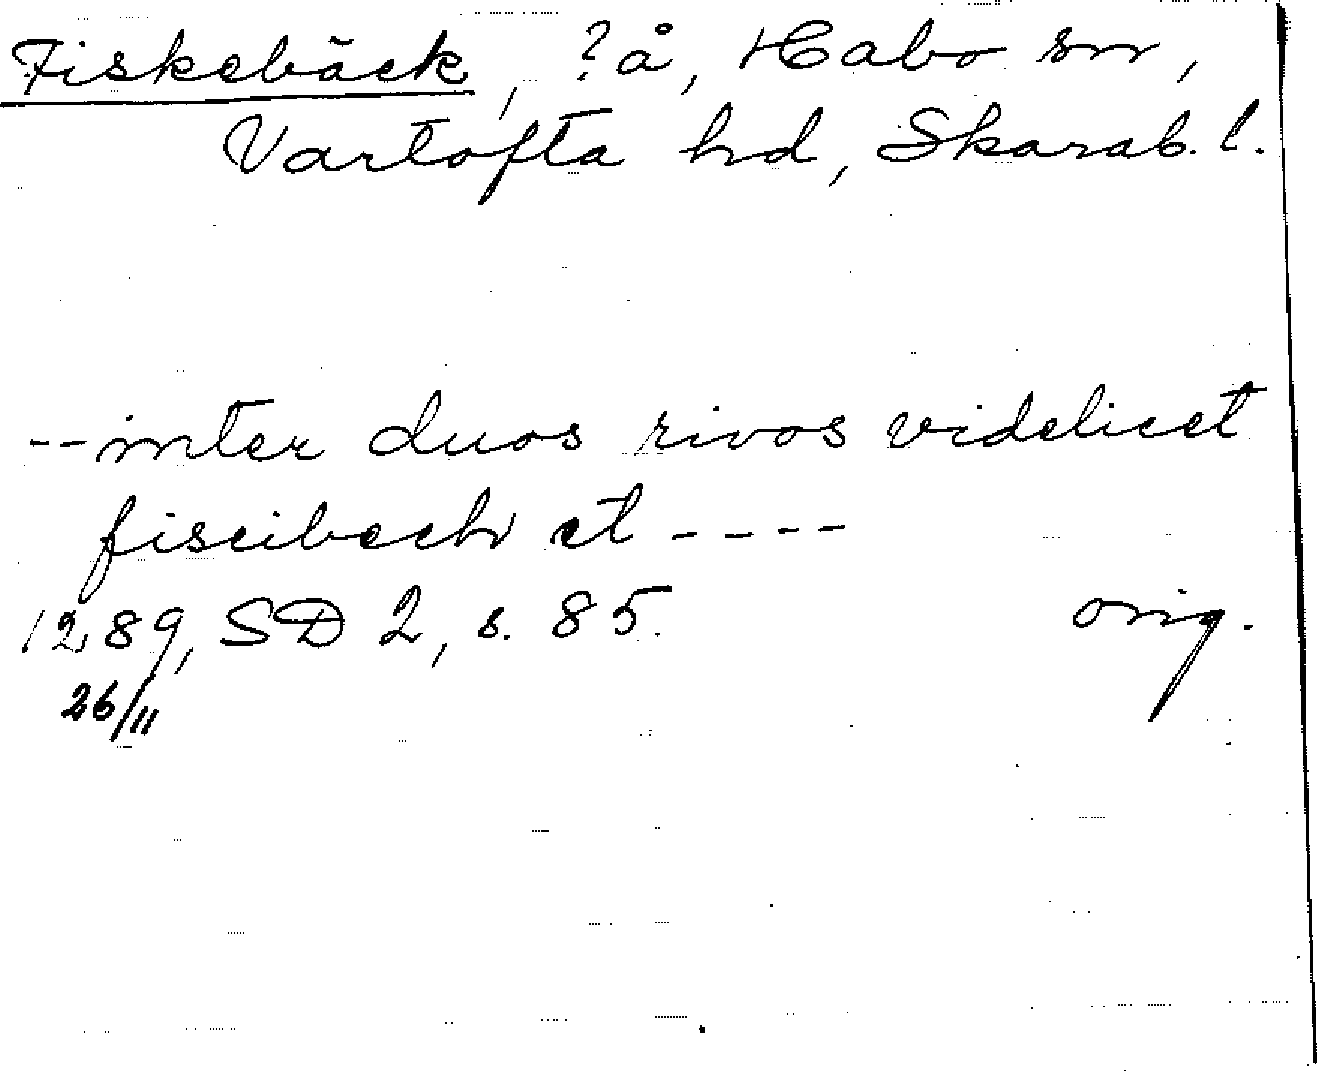 Fiskebäck, ?å, Habo sn,
Vartofta hd, Skarab. l.
--inter duos rivos videlicet
fiscibech et ----
1289, SD 2, s. 85. orig.
26/11